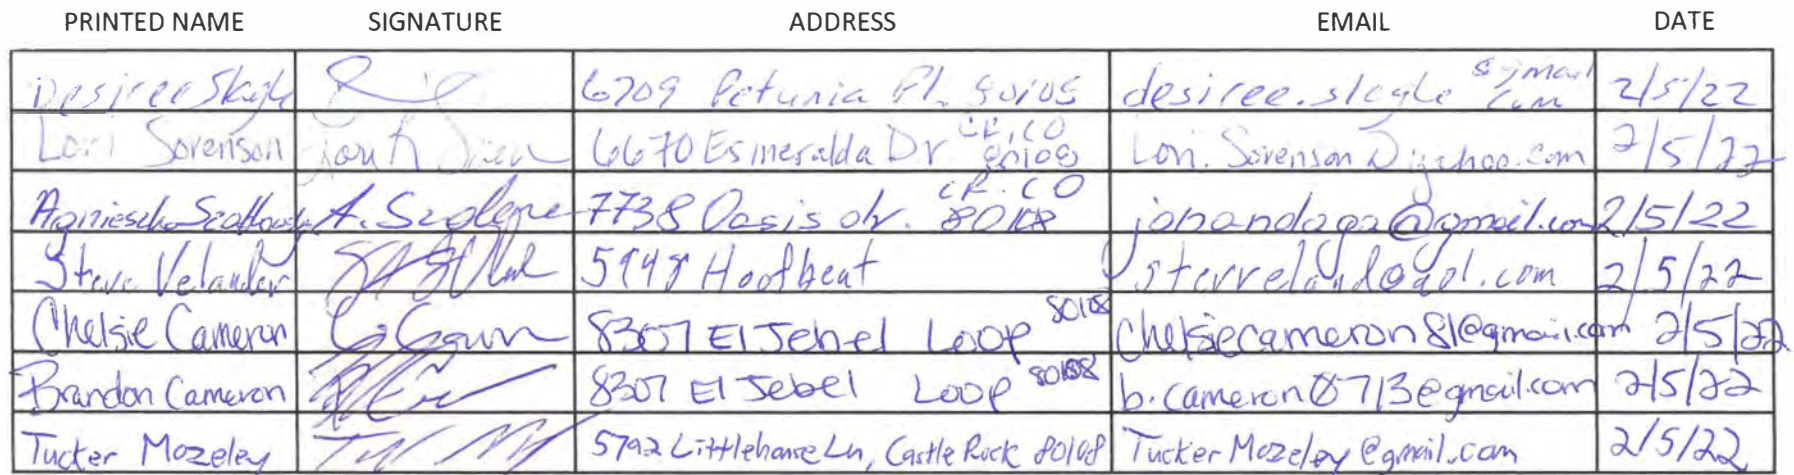 PRINTED NAME SIGNATURE ADDRESS EMAIL DATE
Desiree Slagle 6709 Petunia Pl. 80108 desiree.slagle @gmail.com 2/5/22
Lori Sorenson 6670 Esmeralda Dr CR, CO 80108 Lori.Sorenson@yahoo.com 2/5/22
Agnieszka A. 7738 Oasis dr. CR. CO 80108 jonandaga@gmail.com 2/5/22
Steve Velander 5948 Hoofbeat 2/5/22
Chelsie Cameron 8307 El Jebel Loop 80108 chelsiecameron81@gmail.com 2/5/22
Brandon Cameron 8307 El Jebel Loop 80108 b.cameron0713@gmail.com 2/5/22
Tucker Mozeley 5792 Littlehorse Ln, Castle Rock 80108 TuckerMozeley@gmail.com 2/5/22